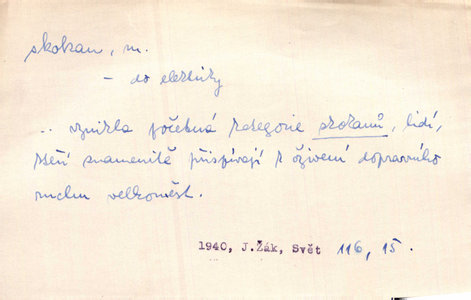 skokan, m.
– do elektriky
.. vznikla početná kategorie skokanů, lidí,
kteří znamenitě přispívají k oživení dopravního
ruchu velkoměst.
1940, J.Žák, Svět 116, 15.